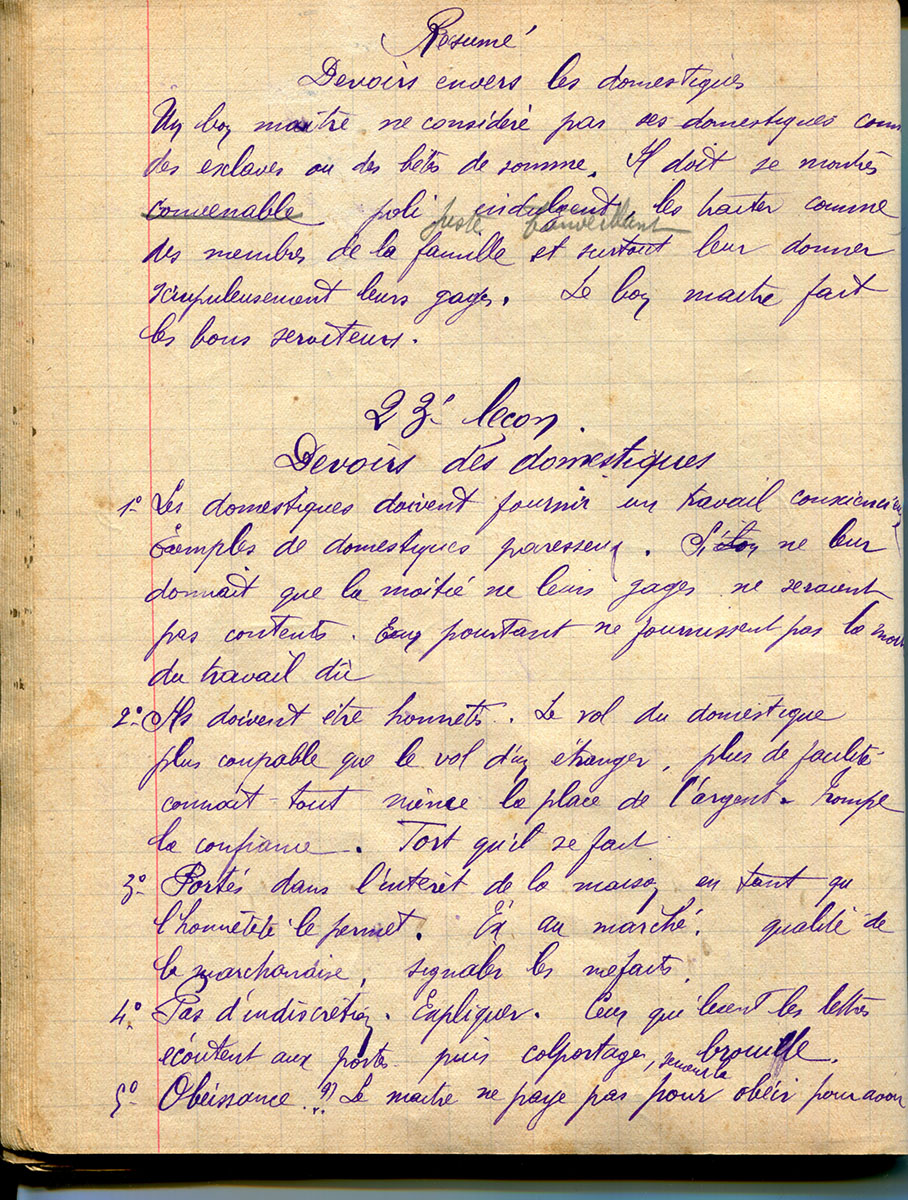 Résumé
Devoirs envers les domestiques
Un bon maître ne considère pas ses domestiques com
des exclaves ou des bêtes de somme. Il doit se montrer
convenable poli indulgent, les traiter comme
juste bienveillant
des membres de la famille et surtout leur donner
scrupuleusement leurs gages. Le bon maitre fait
les bons serviteurs.
23e leçon.
Devoirs des domestiques
1º Les domestiques doivent fournir un travail conscencieu
Exemples de domestiques paresseux. Si on ne leur
donnait que la moitié ne leurs gages ne seraient
pas contents. Eux pourtant ne fournissent pas la moi
du travail dû
2º Ils doivent être honnêts. Le vol du domestique
plus coupable que le vol d'un étranger, plus de facilité
connait tout même la place de l'argent. trompe
la confiance. Tort qu'il se fait
3º Portés dans l'intérêt de la maison en tant qu
l'honnêteté le permet. Ex au marché. qualité de
la marchandise, signaler les mefaits.
4º Pas d'indiscrétion. Expliquer. Ceux qui lisent les lettres
écoutent aux portes puis colportage, brouille.
5º Obéissance !!) Le maitre ne paye pas pour obéir pour avoir